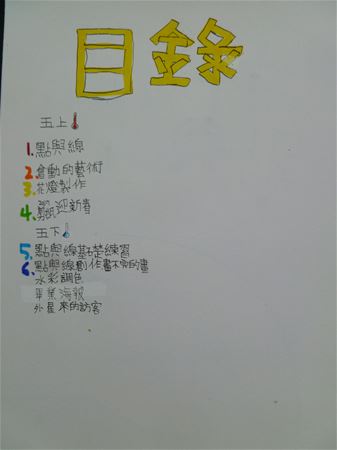 目錄
五上
1.點與線
2.會動的藝術
3.花燈製作
4.剪紙迎新春
五下
5.點與線基礎練習
6.點與線創作畫不完的畫
水彩調色
畢業海報
外星來的訪客